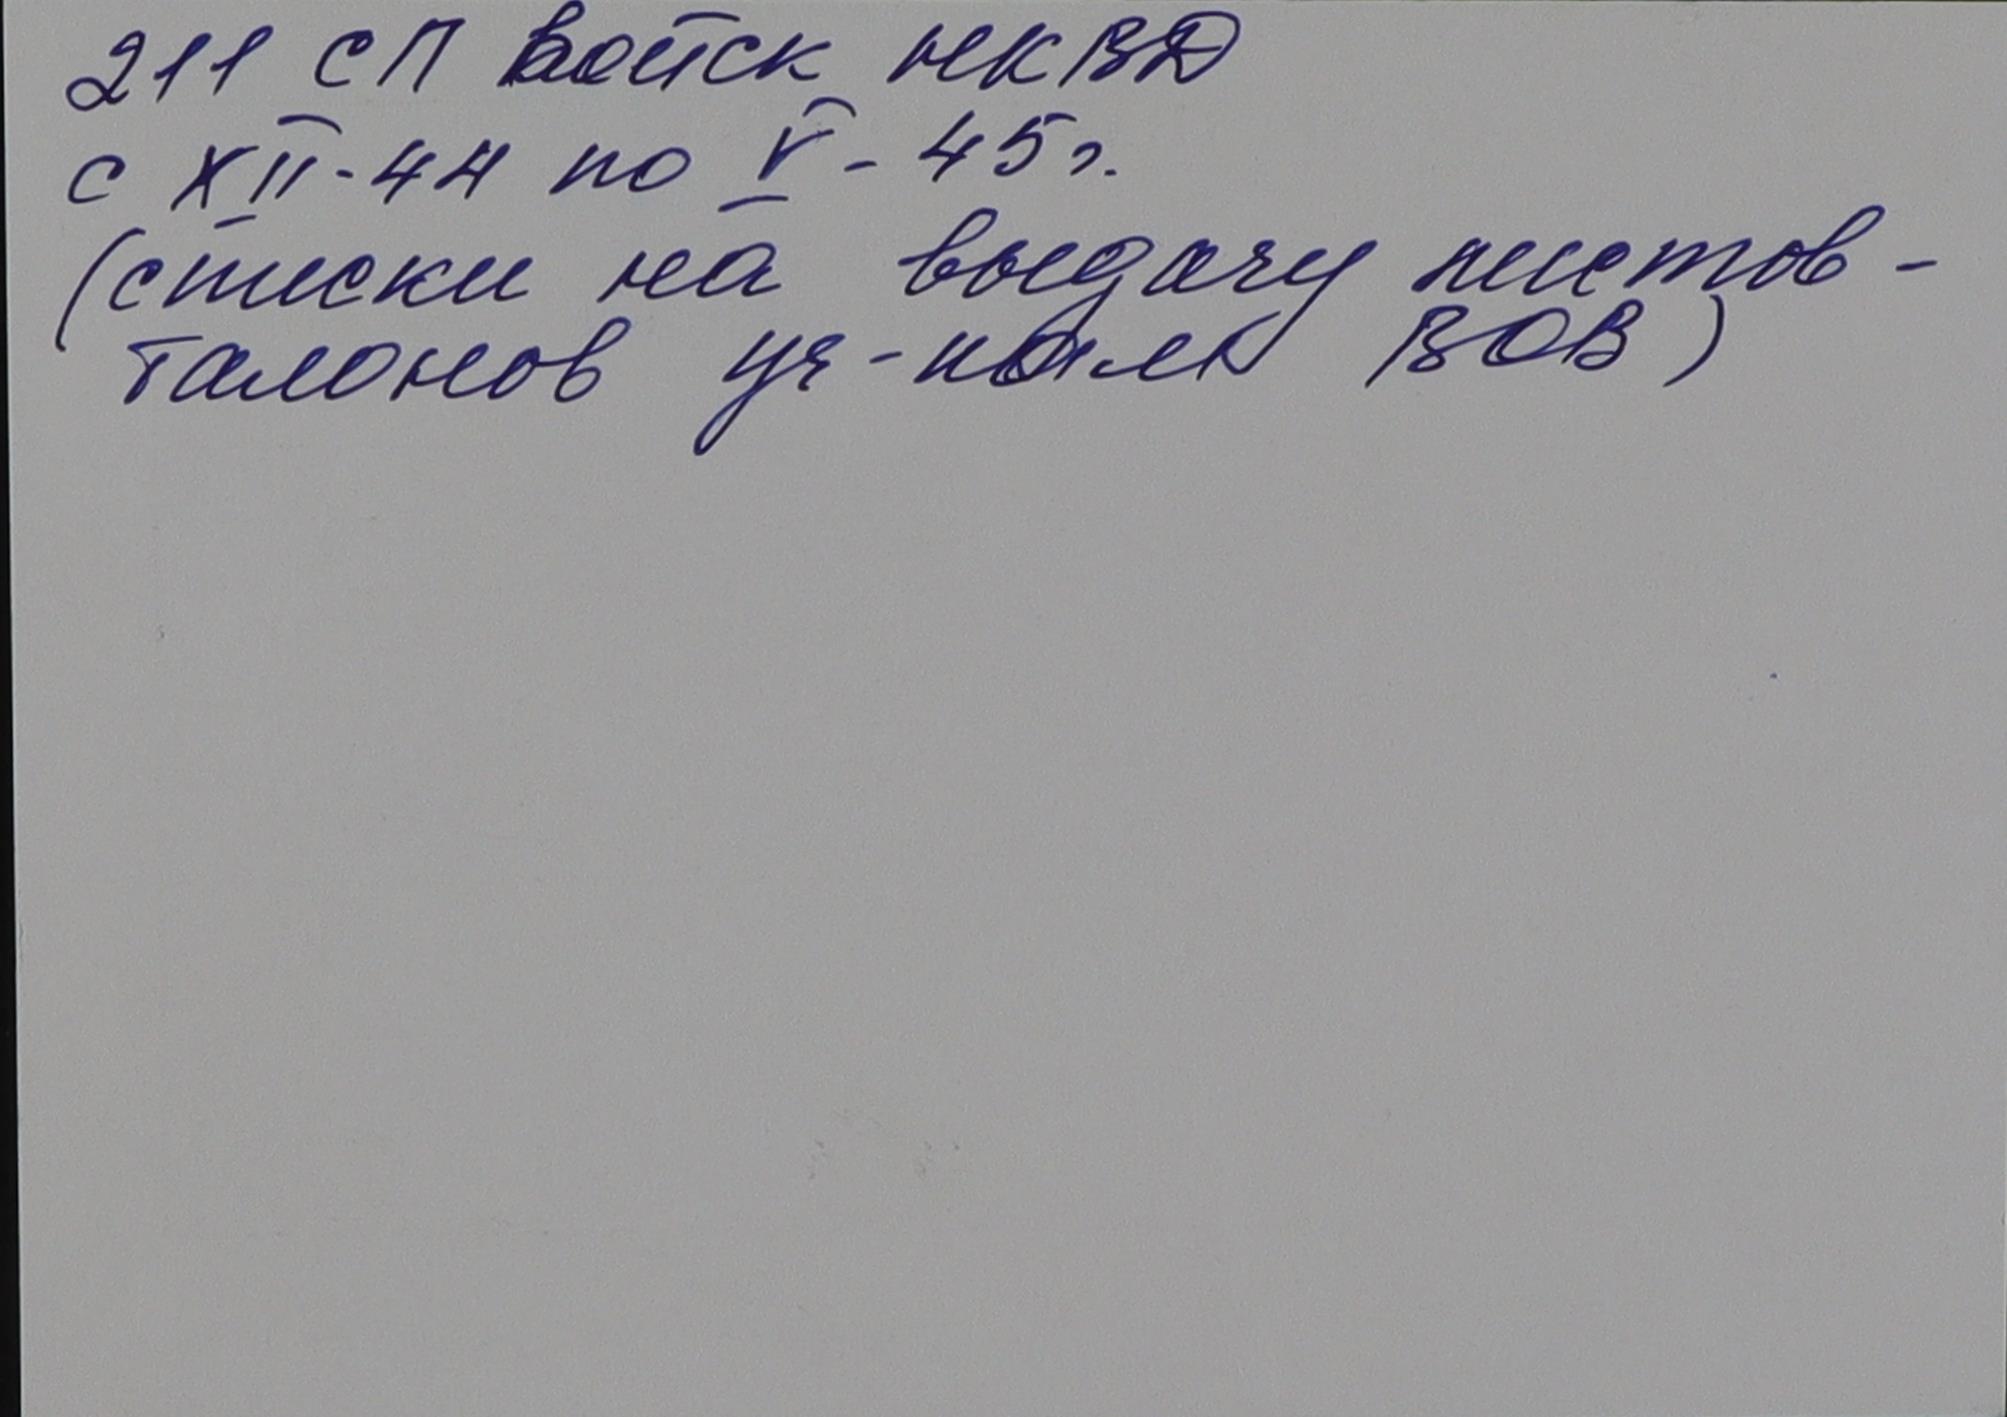 211 СП войск НКВД
с XII-44 по V-45г.
(списки на выдачу листов-
талонов уч-кам ВОВ)